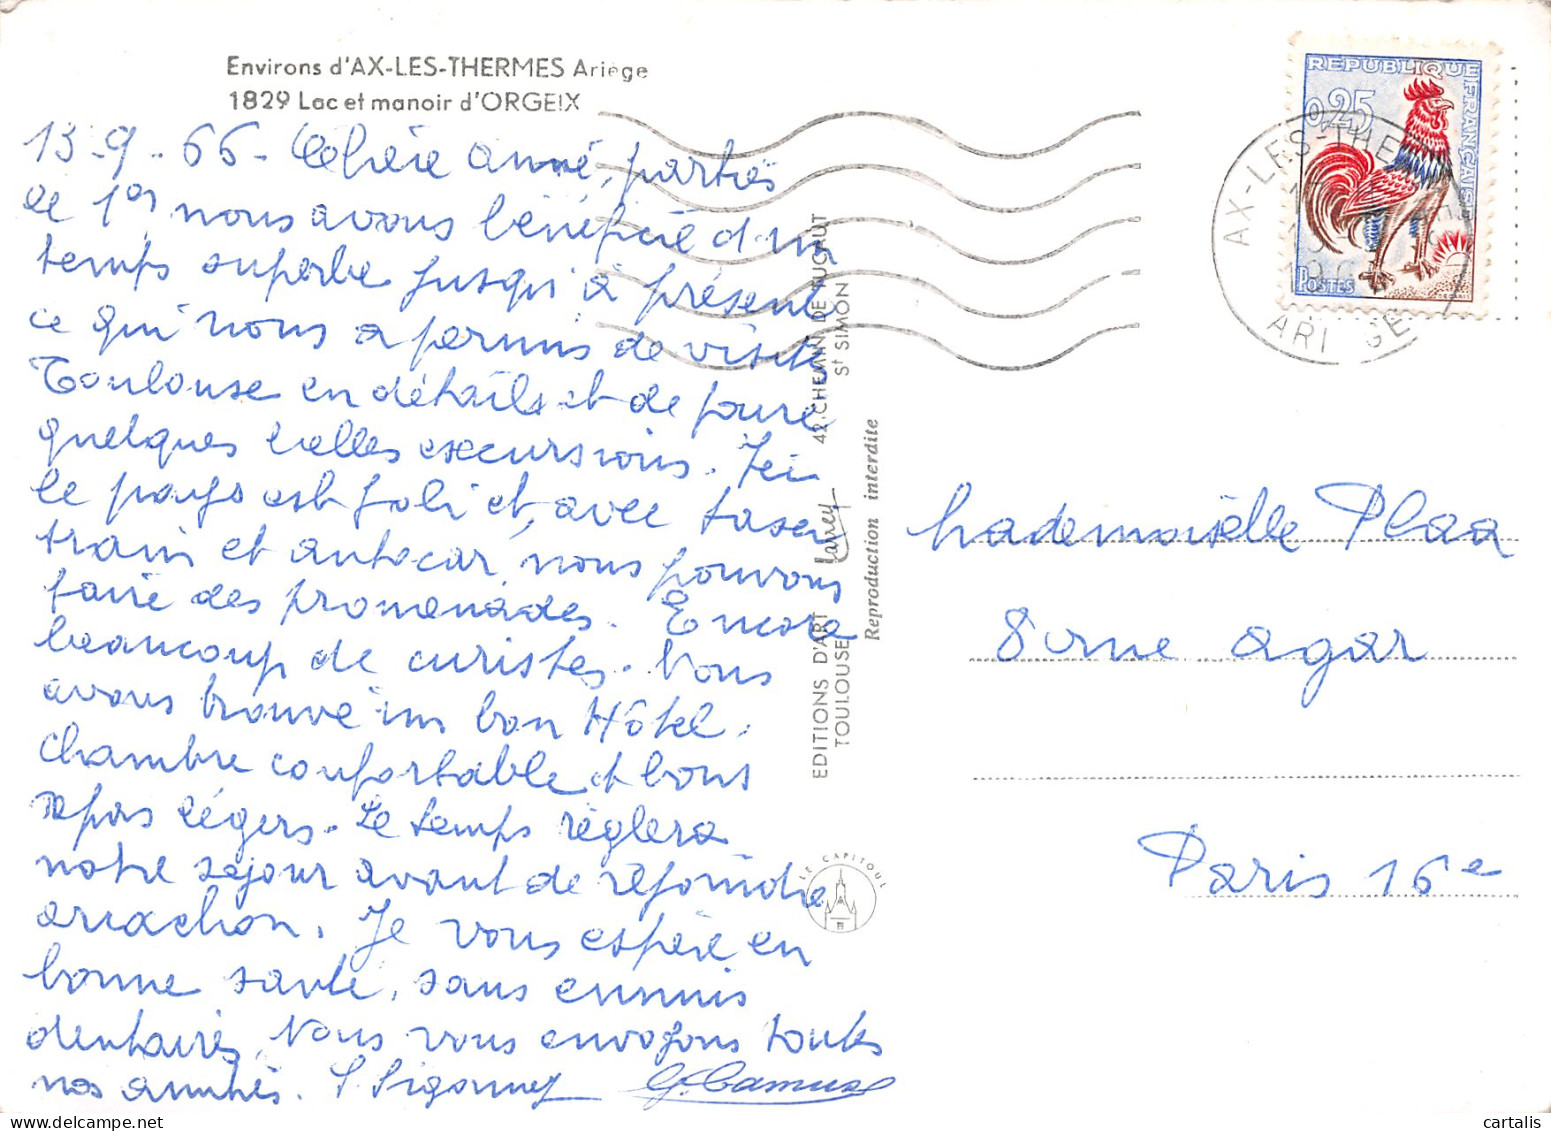 Environs d'AX-LES-THERMES Ariège
1829 Lac et manoir d'ORGEIX
13-9-66- Chère amie, parties
le 1er, nous avons bénéficié d'un
temps superbe jusqu'à présent
ce qui nous a permis de visiter
Toulouse en détails et de faire
quelques belles excursions. Ici
le pays est joli et, avec taxer
train et autocar, nous pouvons
faire des promenades. Encore
beaucoup de curistes. Nous
avons trouvé un bon Hôtel.
chambre confortable et bons
repas légers. Le temps règlera
notre séjour avant de rejoindre
arcachon. Je vous espère en
bonne santé, sans ennuis
dentaires. Nous vous envoyons toutes
nos amitiés. G. Camus
EDITIONS D'ART Larrey 42, CHEMIN DE PUCHUT
TOULOUSE St SIMON
Reproduction interdite
LE CAPITOUL
REPUBLIQUE FRANÇAISE
0,25
POSTES
AX-LES-THERMES
ARIEGE
Mademoiselle Plaa
8 rue agar
Paris 16e
cartalis
www.delcampe.net